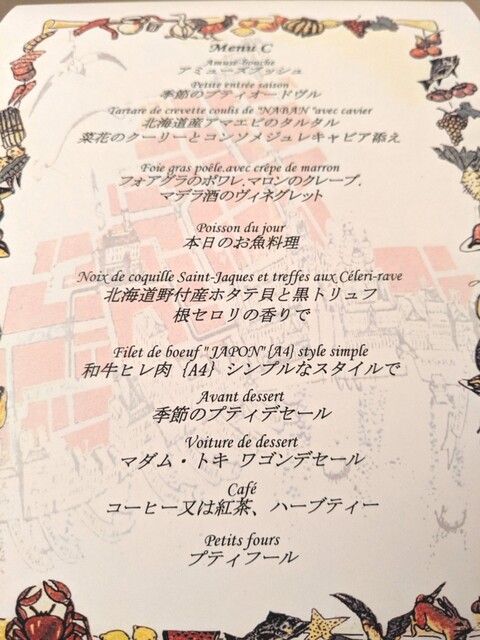 Menu C
Amuse Bouche
アミューズブッシュ
Petite entrée saison
季節のプティオードヴル
Tartare de crevette coulis de "NABAN "avec cavier
北海道産アマエビのタルタル
菜花のクーリーとコンソメジュレキャビア添え
Foie gras poêle.avec crêpe de marron
フォアグラのポワレ.マロンのクレープ.
マデラ酒のヴィネグレット
Poisson du jour
本日のお魚料理
Noix de coquille Saint-Jaques et treffes aux Céleri-rave
北海道野付産ホタテ貝と黒トリュフ
根セロリの香りで
Filet de boeuf " JAPON" {A4} style simple
和牛ヒレ肉 {A4} シンプルなスタイルで
Avant dessert
季節のプティデセール
Voiture de dessert
マダム・トキ ワゴンデセール
Café
コーヒー又は紅茶、ハーブティー
Petits fours
プティフール